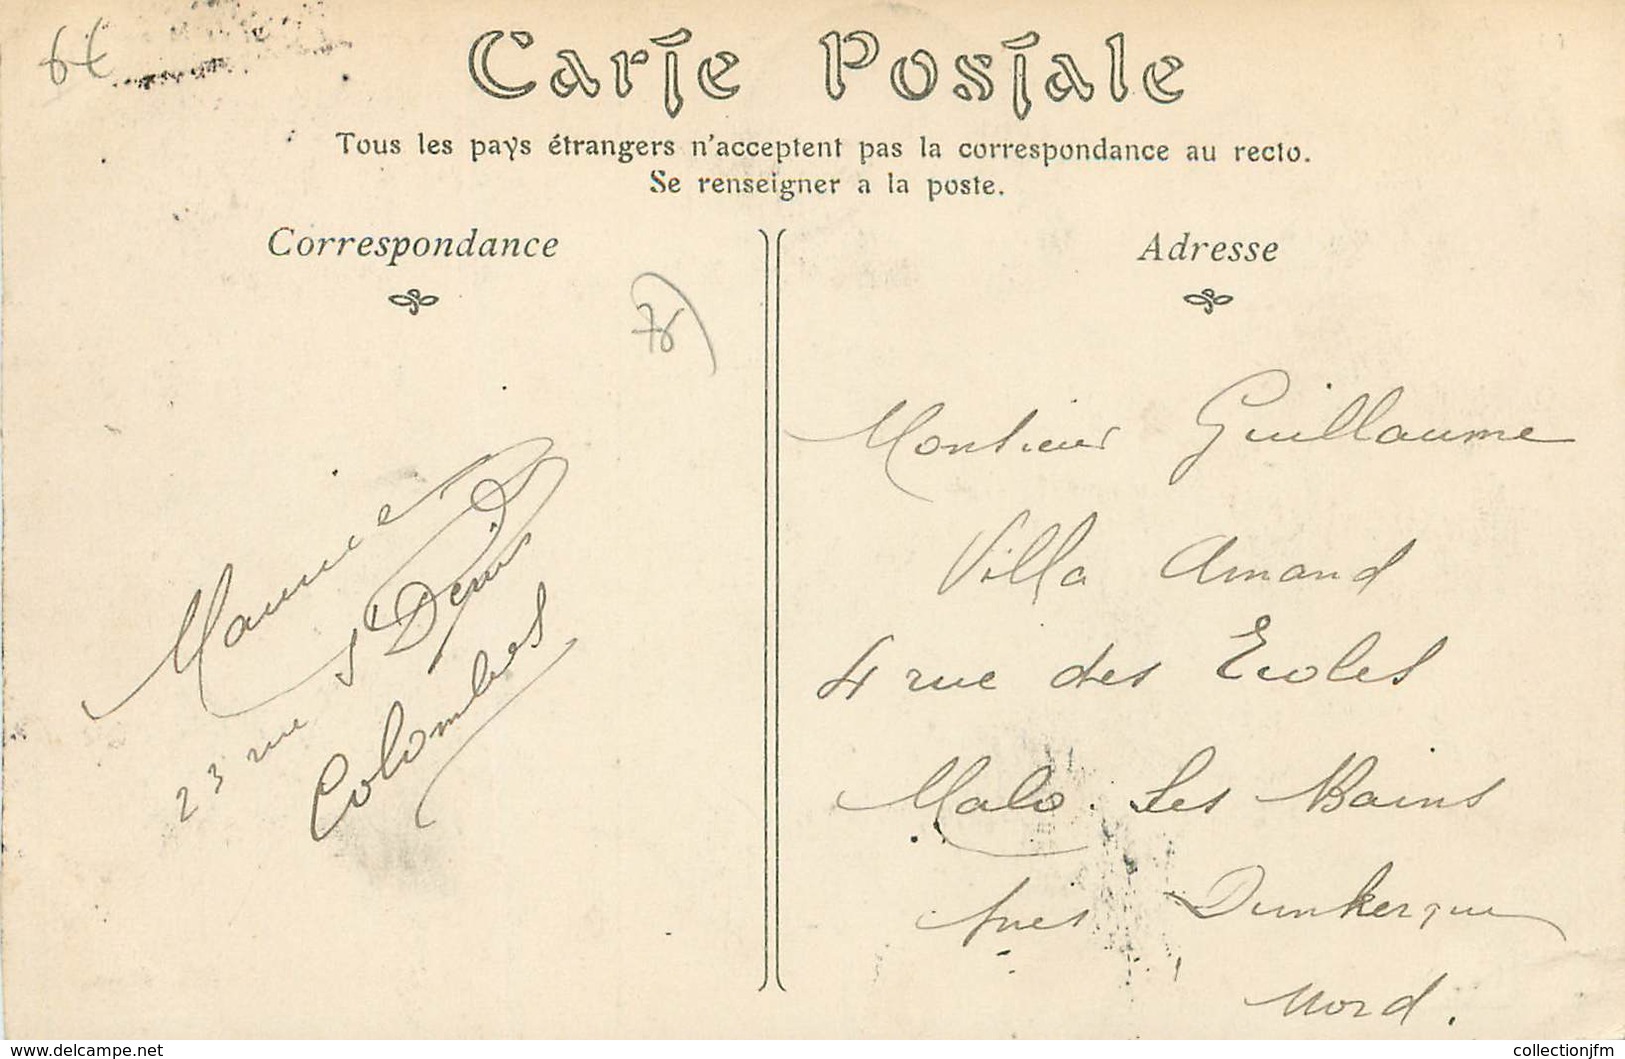 6€
Carte Postale
Tous les pays étrangers n'acceptent pas la correspondance au recto.
Se renseigner a la poste.
Correspondance
78
Maurice
23 rue St Denis
Colombes
Adresse
Monsieur Guillaume
Villa Amand
4 rue des Ecoles
Malo. Les Bains
près Dunkerque
Nord.
www.delcampe.net
collectionjfm